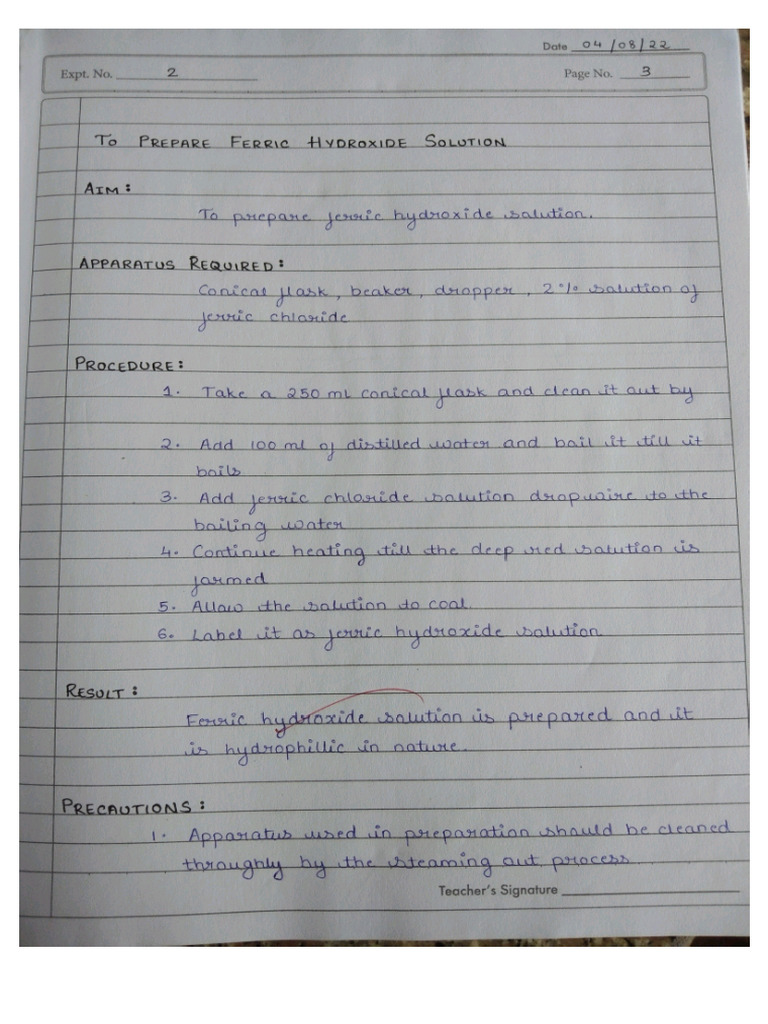 Date 04/08/22
Expt. No. 2 Page No. 3
TO PREPARE FERRIC HYDROXIDE SOLUTION
AIM:
To prepare ferric hydroxide solution.
APPARATUS REQUIRED:
Conical flask, beaker, dropper, 2% solution of
ferric chloride
PROCEDURE:
1. Take a 250 ml conical flask and clean it out by
2. Add 100 ml of distilled water and boil it till it
boils
3. Add ferric chloride solution dropwire to the
boiling water
4. Continue heating till the deep red solution is
formed
5. Allow the solution to cool.
6. Label it as ferric hydroxide solution
RESULT:
Ferric hydroxide solution is prepared and it
is hydrophillic in nature.
PRECAUTIONS:
1. Apparatus used in preparation should be cleaned
throughly by the steaming out process
Teacher's Signature